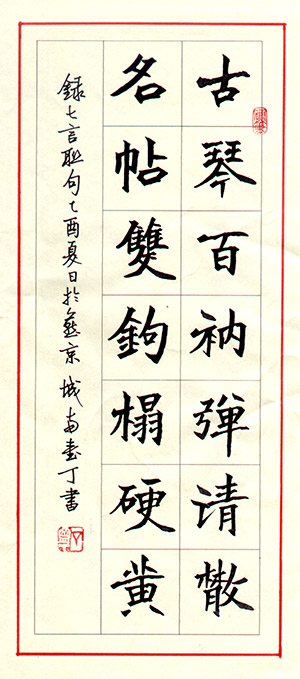 古琴百衲彈清散
名帖雙鉤榻硬黃
錄七言聯句乙酉夏日於燕京城南丁書